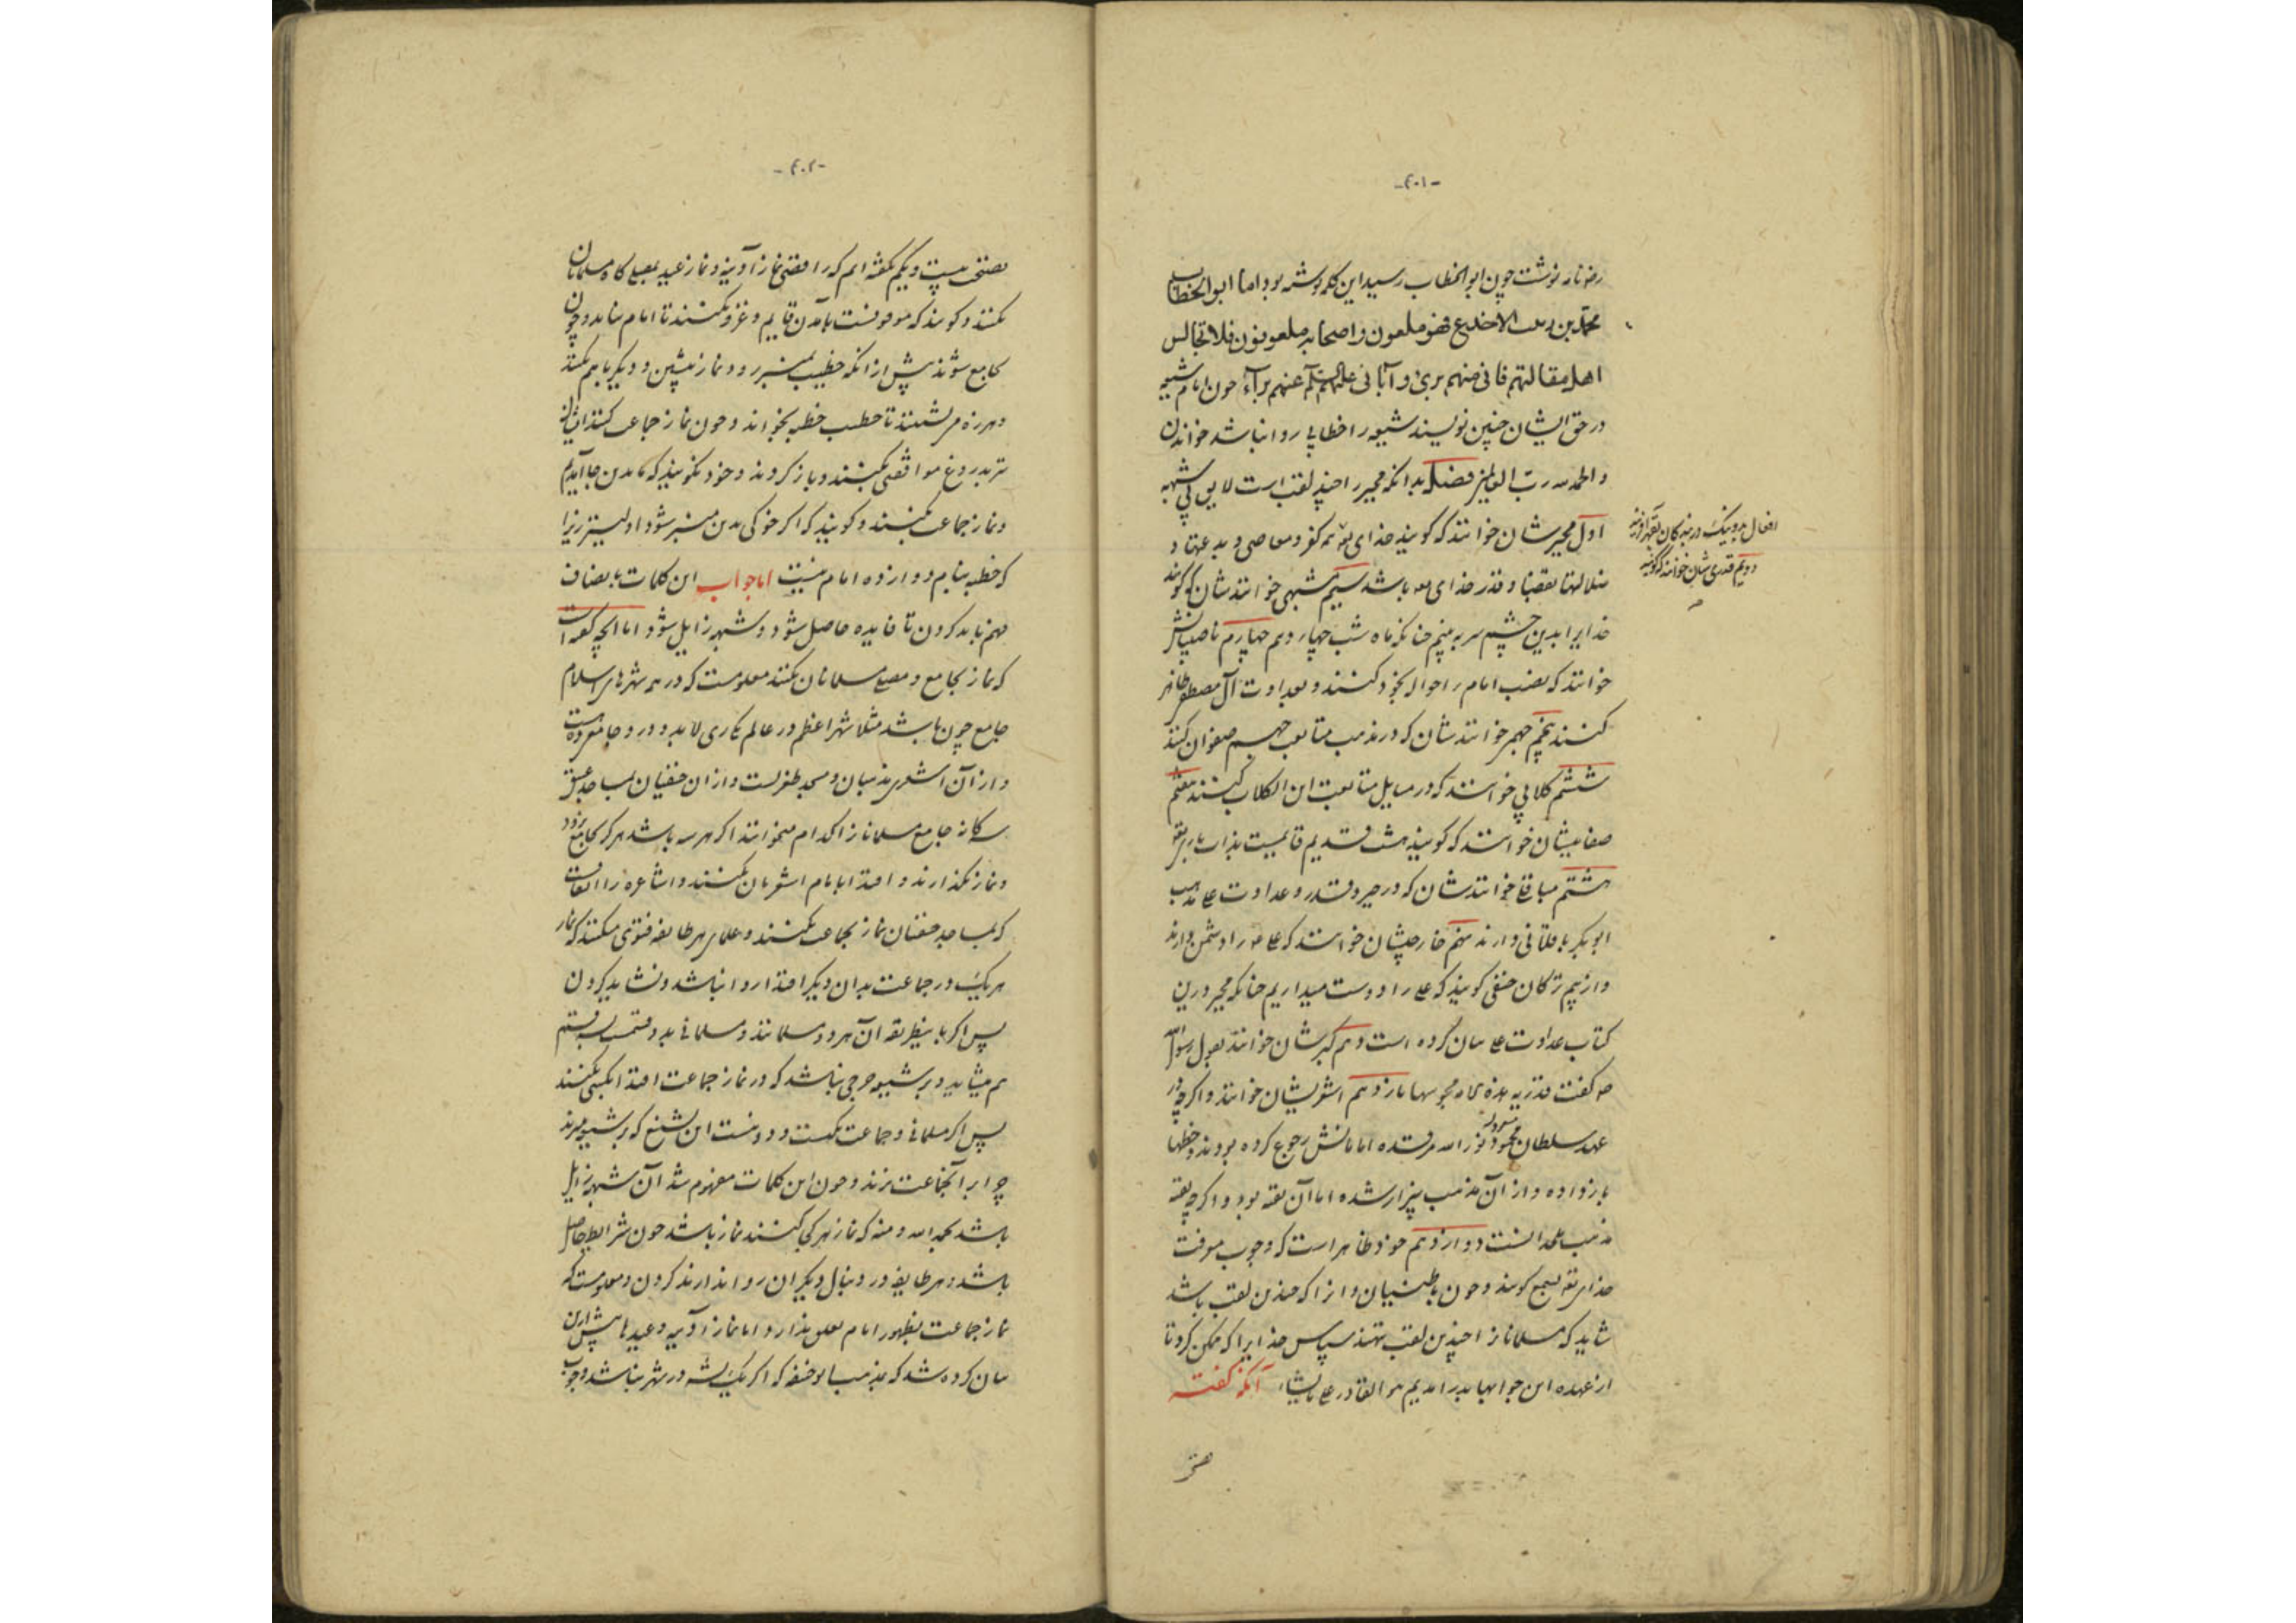 -۴۰۱-
نوشت چون ابو الخطاب رسید این کلمه نوشته بود اما ابو الخطاب
محمد بن الاخدع فهو ملعون و اصحابه ملعونون فلا تجالس
اهل مقالتهم فانی منهم بریء و آبائی علیهم السلم عنهم برآء چون امام شیعه
در حق ایشان چنین نویسند شیعه را خطابی روا نباشد خواندن
و الحمد لله رب العالمین فصل بدانکه مجبر را چند لقب است لایق بی شبهه
اول مجبرشان خوانند که گویند خدای تع همه کفر و معاصی و بدعتها و
ضلالتها بقضا و قدر خدای باشد سیم مشبهی خوانندشان که گویند
خدایرا بدین چشم سر به بینیم چنانکه ماه شب چهاردهم چهارم ناصبیانش
خوانند که نصب امام را حواله بخود کنند و بعداوت آل مصطفی ظاهر
کنند پنجم جهمی خوانندشان که در مذهب متابعت جهم صفوان کنند
ششم کلابی خوانند که در مسایل متابعت ابن الکلاب کنند هفتم
صفاتیشان خوانند که گویند هشت قدیم قایمست بذات باری تع
هشتم خوانندشان که در جبر و قدر و عداوت علی مذهب
ابو بکر باقلانی دارند نهم خارجیشان خوانند که علی را دشمن دارند
و از بیم ترکان حنفی گویند که علی را دوست میداریم چنانکه مجبر درین
کتاب عداوت علی بیان کرده است دهم گبرشان خوانند بقول رسول
که گفت قدریه مجوسها یازدهم اشعریشان خوانند و اگرچه در
عهد سلطان محمود نور الله مرقده امامانش رجوع کرده بودند و خطها
باز داده و از آن مذهب بیزار شده اما آن تقیه بود و اگرچه تقیه
مذهب ملحدانست دوازدهم خود ظاهر است که وجوب معرفت
خدای تع بسمع گویند و چون باطنیان و آنرا که چندین لقب باشد
شاید که مسلمانانرا چندین لقب نهند سپاس خدایرا که ممکن کرد تا
از عهده این جوابها بدر آمدیم هو القادر علی ما یشاء آنکه گفته
افعال بد و نیک در بندگان تع آفریند
دویم قدری شان خوانند که گویند
-۴۰۲-
نیست و یکم گفته ایم که رافضی نماز آدینه و نماز عید بمصلی گاه مسلمانان
نکنند و گویند که موقوفست بآمدن قایم و غزو نکنند تا امام نیاید و چون
بجامع شوند پیش از آنکه خطیب بمنبر رود نماز پیشین و دیگر باهم بکنند
و هرزه می نشینند تا خطیب خطبه بخواند و چون نماز جماعت کنند ایشان
نیز بدروغ موافقتی بکنند و باز گردند و خود نگویند که بدین جا آمدیم
و نماز جماعت نکنند و گویند که اگر خوکی بدین منبر شود اولیتر زیرا
که خطبه بنام دوازده امام نیست اما جواب این کلمات بانصاف
فهم باید کردن تا فایده حاصل شود و شبهه زایل شود اما آنچه گفته است
که نماز بجامع و مصلی مسلمانان نکنند معلومست که در همه شهرهای اسلام
جامع چون باشد مثلا شهر اعظم در عالم یکی ری لابد و در و جامع
و از آن اشعری مذهبان و مسجد طغرلست و از آن حنفیان بمساجد عتیق
جامع مسلمانانرا کدام میخوانند اگر هر سه باشد هر که بجامع رود
و نماز بگذارند و اقتدا بامام اشعریان نکنند و اشاعره را اتفاقست
که بمساجد حنفیان نماز بجماعت نکنند و علمای هر طایفه فتوی میکنند که نماز
هر یک در جماعت بدان دیگر اقتدا روا نباشد و نشاید کردن
پس اگر باینطریقه آن هر دو مسلمانند و مسلمانی بدو قسمست بسه قسم
هم میشاید و بر شیعه حرجی نباشد که در نماز جماعت اقتدا بکسی نکنند
پس اگر مسلمانی و جماعت یکیست و دو نیست این تشنیع که بر شیعه میزند
چرا بر آنجماعت نزند و چون این کلمات مفهوم شد آن شبهه زایل
باشد بحمد الله و منه که نماز هر کجا کنند نماز باشد چون شرایط حاصل
باشد و هر طایفه در دنبال دیگران روا ندارند کردن و معلومست که
نماز جماعت بظهور امام تعلق ندارد اما نماز آدینه و عیدها پیش ازین
بیان کرده شد که بمذهب بو حنیفه که اگر یک در شهر نباشد وجوب